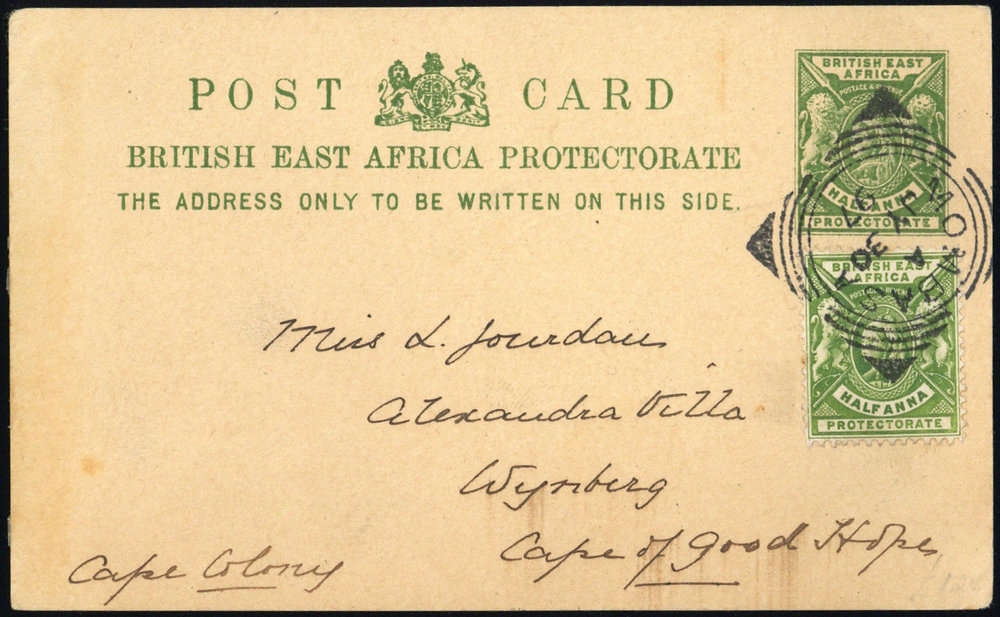 POST CARD
BRITISH EAST AFRICA PROTECTORATE
THE ADDRESS ONLY TO BE WRITTEN ON THIS SIDE.
BRITISH EAST
AFRICA
POSTAGE &
HALF ANNA
PROTECTORATE
MOMBASA
DE
97
BRITISH EAST
AFRICA
POSTAGE & REVENUE
HALF ANNA
PROTECTORATE
Miss L. Jourdan
Alexandra Villa
Wynberg
Cape of Good Hope,
Cape Colony